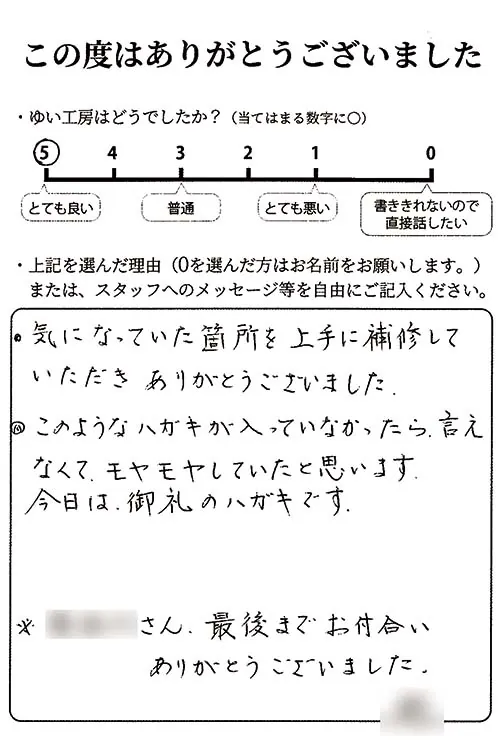 この度はありがとうございました
・ゆい工房はどうでしたか？（当てはまる数字に○）
5 4 3 2 1 0
とても良い 普通 とても悪い 書ききれないので
直接話したい
・上記を選んだ理由（0を選んだ方はお名前をお願いします。）
または、スタッフへのメッセージ等を自由にご記入ください。
● 気になっていた箇所を上手に補修して
いただき ありがとうございました.
◎ このようなハガキが入っていなかったら、言え
なくて、モヤモヤしていたと思います.
今日は、御礼のハガキです.
※ さん、最後までお付合い
ありがとうございました.